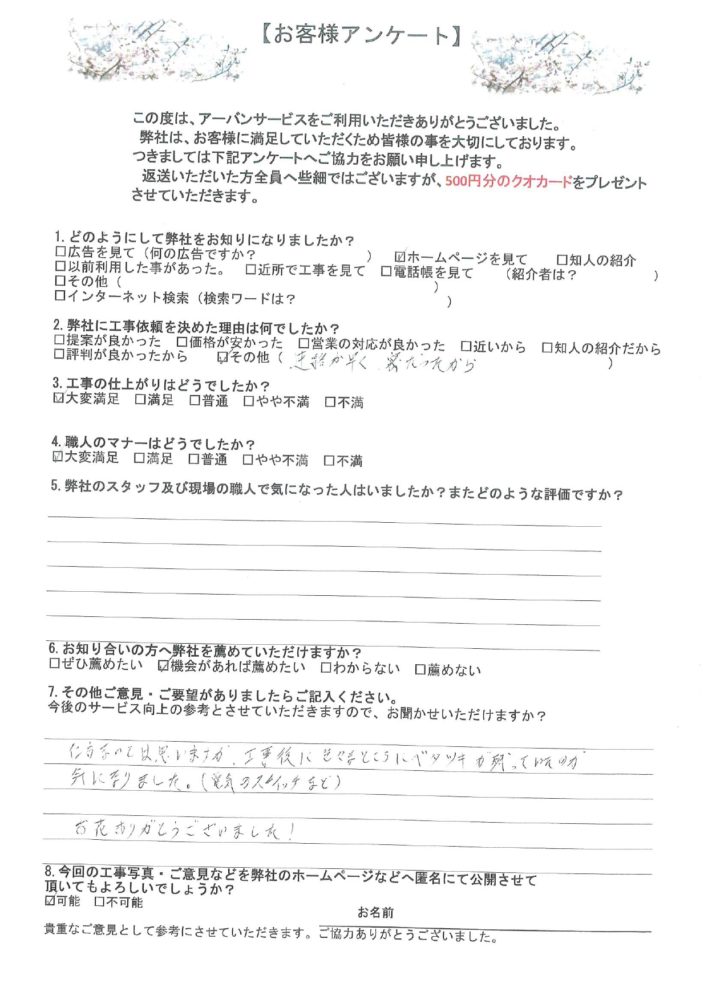 【お客様アンケート】
この度は、アーバンサービスをご利用いただきありがとうございました。
弊社は、お客様に満足していただくため皆様の事を大切にしております。
つきましては下記アンケートへご協力をお願い申し上げます。
返送いただいた方全員へ些細ではございますが、500円分のクオカードをプレゼント
させていただきます。
1. どのようにして弊社をお知りになりましたか？
□広告を見て（何の広告ですか？ ） ☑ホームページを見て □知人の紹介
□以前利用した事があった。 □近所で工事を見て □電話帳を見て （紹介者は？ ）
□その他（ ）
□インターネット検索（検索ワードは？ ）
2. 弊社に工事依頼を決めた理由は何でしたか？
□提案が良かった □価格が安かった □営業の対応が良かった □近いから □知人の紹介だから
□評判が良かったから ☑その他（ 連絡が早く、楽だったから ）
3. 工事の仕上がりはどうでしたか？
☑大変満足 □満足 □普通 □やや不満 □不満
4. 職人のマナーはどうでしたか？
☑大変満足 □満足 □普通 □やや不満 □不満
5. 弊社のスタッフ及び現場の職人で気になった人はいましたか？またどのような評価ですか？
6. お知り合いの方へ弊社を薦めていただけますか？
□ぜひ薦めたい ☑機会があれば薦めたい □わからない □薦めない
7. その他ご意見・ご要望がありましたらご記入ください。
今後のサービス向上の参考とさせていただきますので、お聞かせいただけますか？
仕方ないとは思いますが、工事後にさまざまなところにベタツキが残っていたのが
気になりました。（電気のスイッチなど）
お花ありがとうございました！
8. 今回の工事写真・ご意見などを弊社のホームページなどへ匿名にて公開させて
頂いてもよろしいでしょうか？
☑可能 □不可能
お名前
貴重なご意見として参考にさせていただきます。ご協力ありがとうございました。